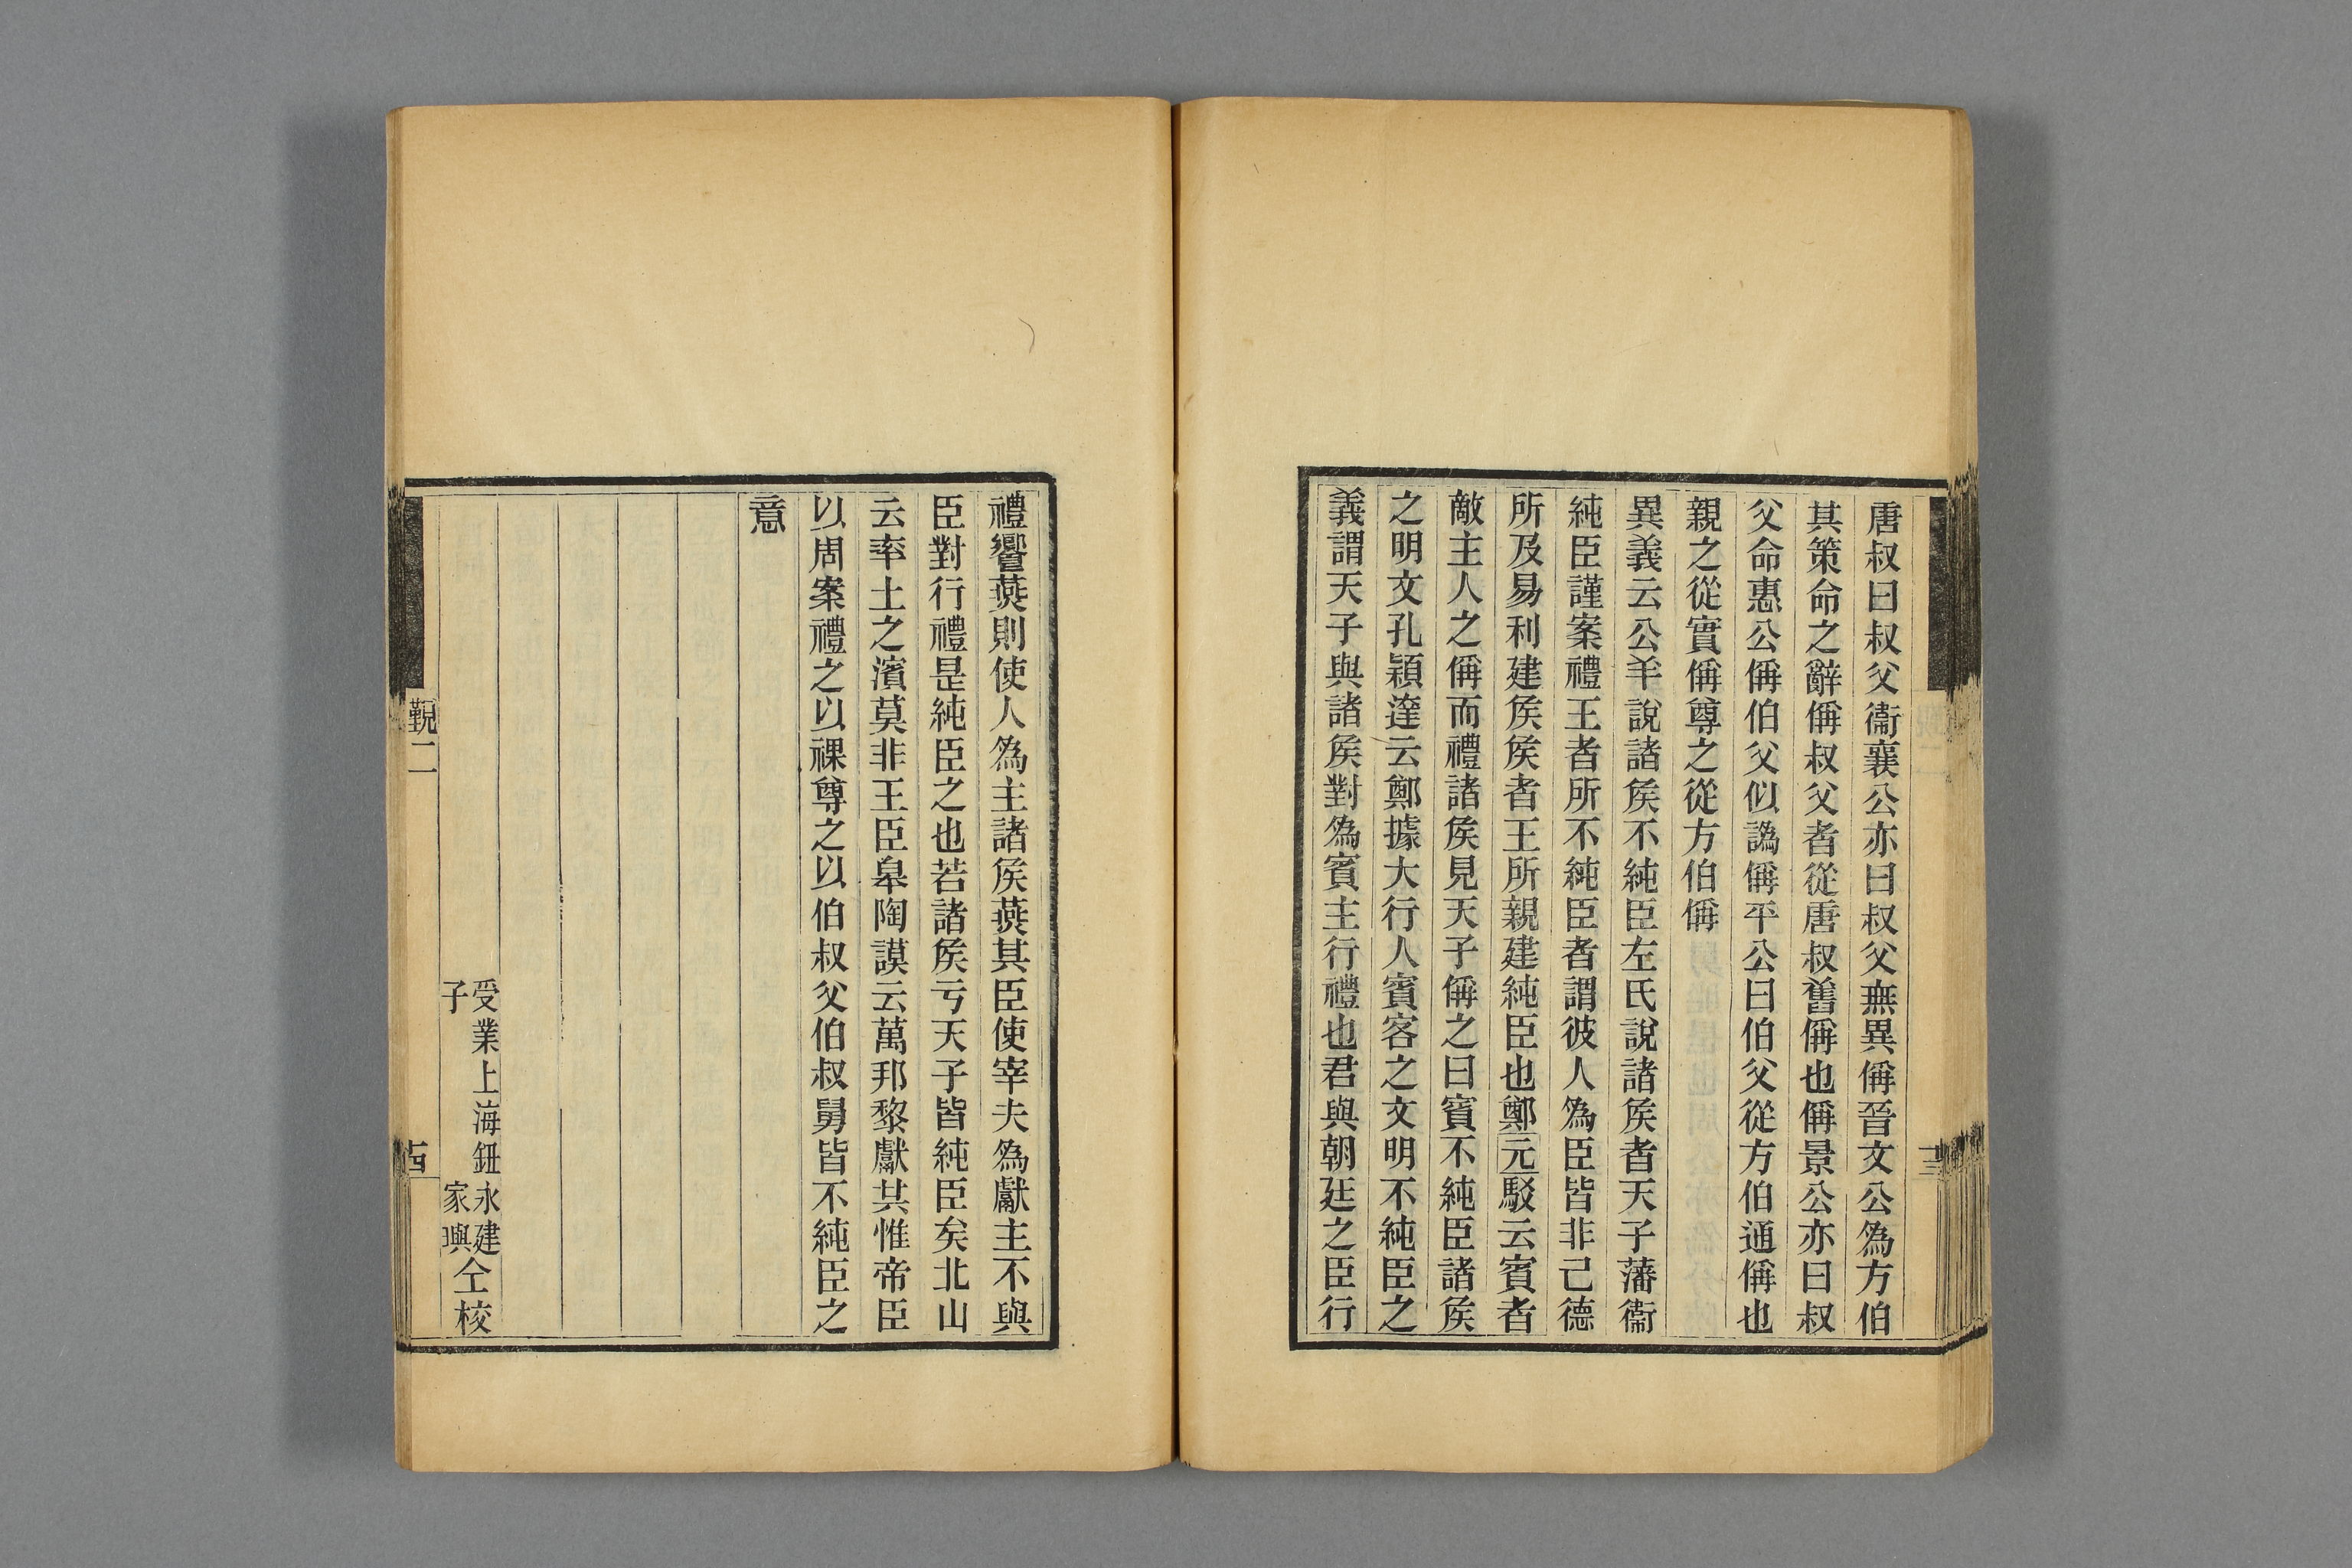 唐叔曰叔父衞襄公亦曰叔父無異偁晉文公爲方伯
其策命之辭偁叔父者從唐叔舊偁也偁景公亦曰叔
父命惠公偁伯父似譌偁平公曰伯父從方伯通偁也
親之從實偁尊之從方伯偁
異義云公羊說諸矦不純臣左氏說諸矦者天子藩衞
純臣謹案禮王者所不純臣者謂彼人爲臣皆非己德
所及易利建矦矦者王所親建純臣也鄭元駁云賓者
敵主人之偁而禮諸矦見天子偁之曰賓不純臣諸矦
之明文孔穎達云鄭據大行人賓客之文明不純臣之
義謂天子與諸矦對爲賓主行禮也君與朝廷之臣行
禮饗燕則使人爲主諸矦燕其臣使宰夫爲獻主不與
臣對行禮是純臣之也若諸矦亏天子皆純臣矣北山
云率土之濱莫非王臣皋陶謨云萬邦黎獻共惟帝臣
以周案禮之以祼尊之以伯叔父伯叔舅皆不純臣之
意
受業上海鈕永建
子家㒜
仝校
覲二
十四